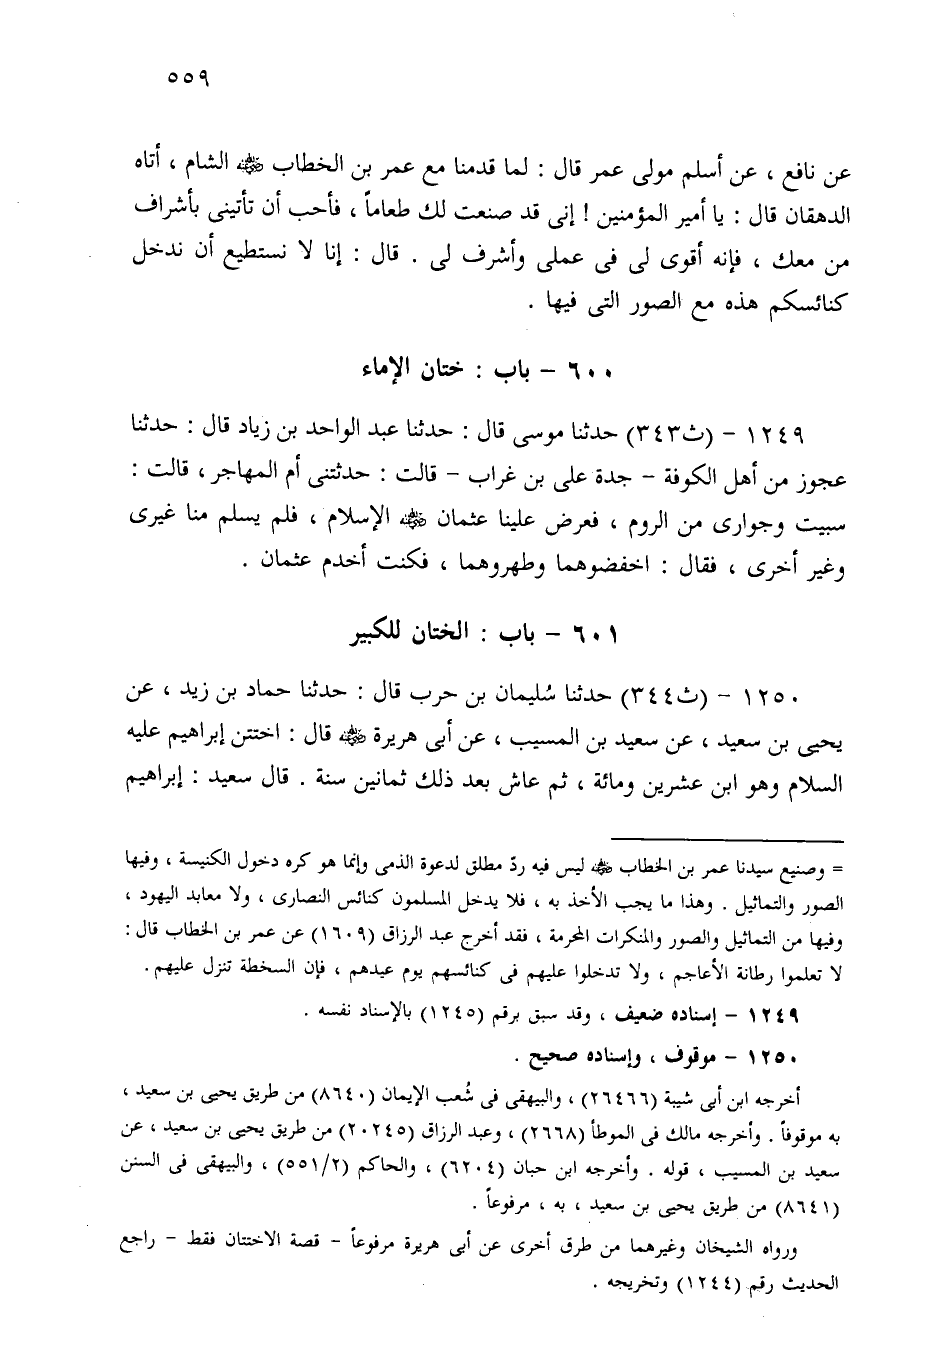 ٥٥٩
عن نافع ، عن أسلم مولى عمر قال : لما قدمنا مع عمر بن الخطاب ﷺ الشام ، أتاه
الدهقان قال : يا أمير المؤمنين ! إنى قد صنعت لك طعاماً ، فأحب أن تأتينى بأشراف
من معك ، فإنه أقوى لى فى عملى وأشرف لى . قال : إنا لا نستطيع أن ندخل
كنائسكم هذه مع الصور التى فيها .
٦٠٠ – باب : ختان الإماء
١٢٤٩ – (ث٣٤٣) حدثنا موسى قال : حدثنا عبد الواحد بن زياد قال : حدثنا
عجوز من أهل الكوفة – جدة على بن غراب – قالت : حدثتنى أم المهاجر ، قالت :
سبيت وجوارى من الروم ، فعرض علينا عثمان ﷺ الإسلام ، فلم يسلم منا غيرى
وغير أخرى ، فقال : اخفضوهما وطهروهما ، فكنت أخدم عثمان .
٦٠١ – باب : الختان للكبير
١٢٥٠ – (ث٣٤٤) حدثنا سُليمان بن حرب قال : حدثنا حماد بن زيد ، عن
يحيى بن سعيد ، عن سعيد بن المسيب ، عن أبى هريرة ﷺ قال : اختتن إبراهيم عليه
السلام وهو ابن عشرين ومائة ، ثم عاش بعد ذلك ثمانين سنة . قال سعيد : إبراهيم
= وصنيع سيدنا عمر بن الخطاب ﷺ ليس فيه ردّ مطلق لدعوة الذمى وإنما هو كره دخول الكنيسة ، وفيها
الصور والتماثيل . وهذا ما يجب الأخذ به ، فلا يدخل المسلمون كنائس النصارى ، ولا معابد اليهود ،
وفيها من التماثيل والصور والمنكرات المحرمة ، فقد أخرج عبد الرزاق (١٦٠٩) عن عمر بن الخطاب قال :
لا تعلموا رطانة الأعاجم ، ولا تدخلوا عليهم فى كنائسهم يوم عيدهم ، فإن السخطة تنزل عليهم.
١٢٤٩ – إسناده ضعيف ، وقد سبق برقم (١٢٤٥) بالإسناد نفسه .
١٢٥٠ – موقوف ، وإسناده صحيح .
أخرجه ابن أبى شيبة (٢٦٤٦٦) ، والبيهقى فى شُعب الإيمان (٨٦٤٠) من طريق يحيى بن سعيد ،
به موقوفاً . وأخرجه مالك فى الموطأ (٢٦٦٨) ، وعبد الرزاق (٢٠٢٤٥) من طريق يحيى بن سعيد ، عن
سعيد بن المسيب ، قوله . وأخرجه ابن حبان (٦٢٠٤) ، والحاكم (٥٥١/٢) ، والبيهقى فى السنن
(٨٦٤١) من طريق يحيى بن سعيد ، به ، مرفوعاً .
ورواه الشيخان وغيرهما من طرق أخرى عن أبى هريرة مرفوعاً – قصة الاختتان فقط – راجع
الحديث رقم (١٢٤٤) وتخريجه .